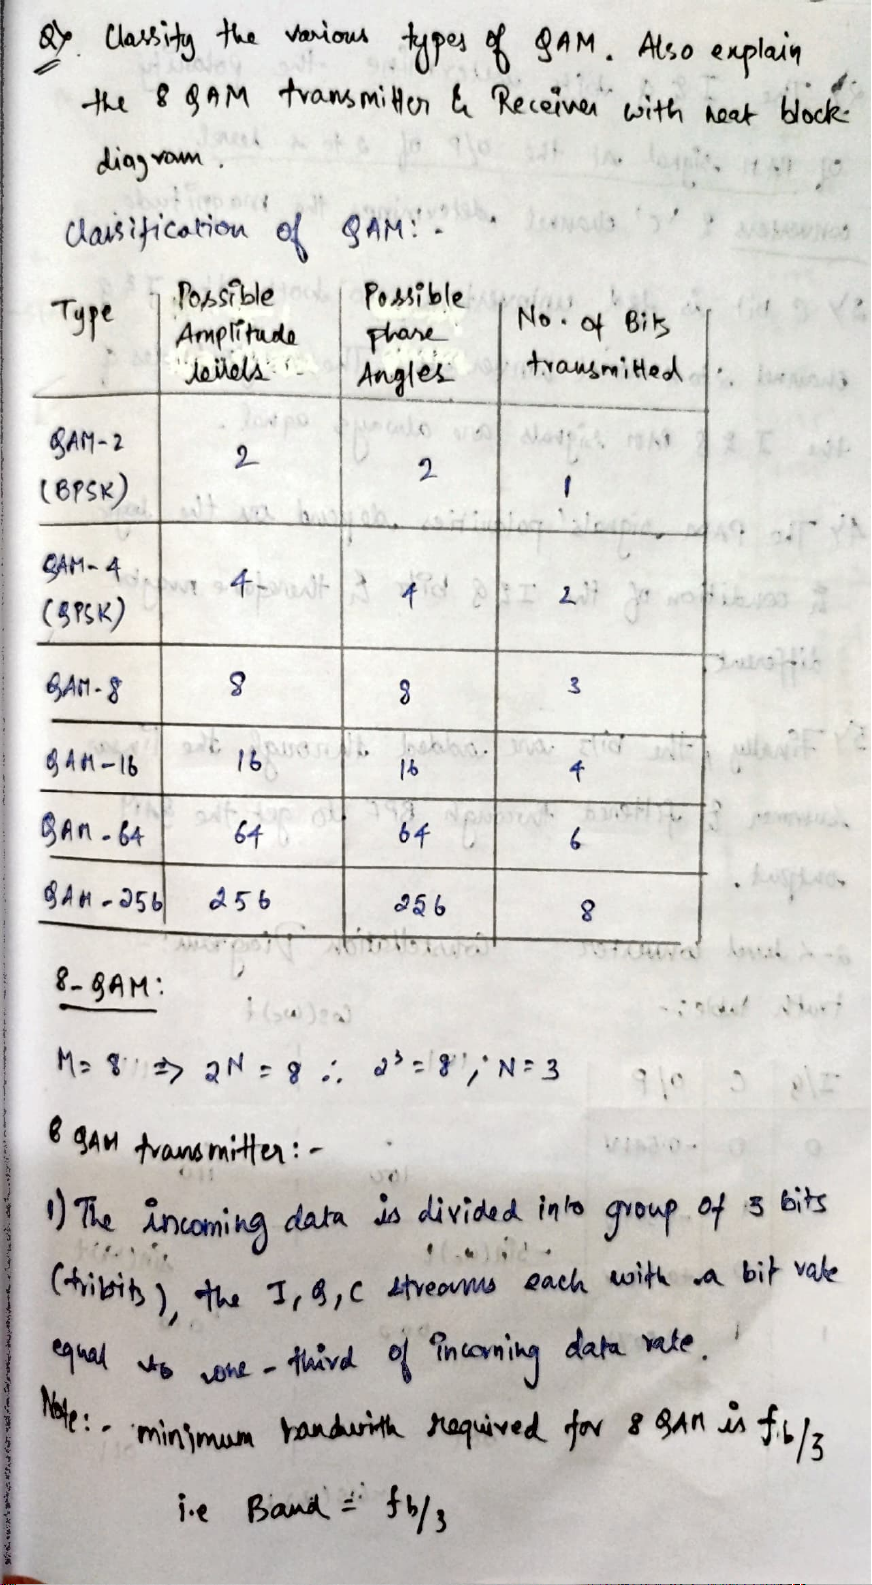 Q⟩. Classify the various types of QAM. Also explain
the 8 QAM transmitter & Receiver with neat block-
diagram.
Classification of QAM:-
Type | Possible Amplitude levels | Possible phase Angles | No. of Bits transmitted
QAM-2 (BPSK) | 2 | 2 | 1
QAM-4 (QPSK) | 4 | 4 | 2
QAM-8 | 8 | 8 | 3
QAM-16 | 16 | 16 | 4
QAM-64 | 64 | 64 | 6
QAM-256 | 256 | 256 | 8
8-QAM:
M=8 => 2N = 8 ∴ 2³=8, N=3
8 QAM transmitter:-
1) The incoming data is divided into group of 3 bits
(tribits), the I, Q, C streams each with a bit rate
equal to one-third of incoming data rate.
Note:- minimum bandwith required for 8 QAM is fb/3
i.e Baud = fb/3